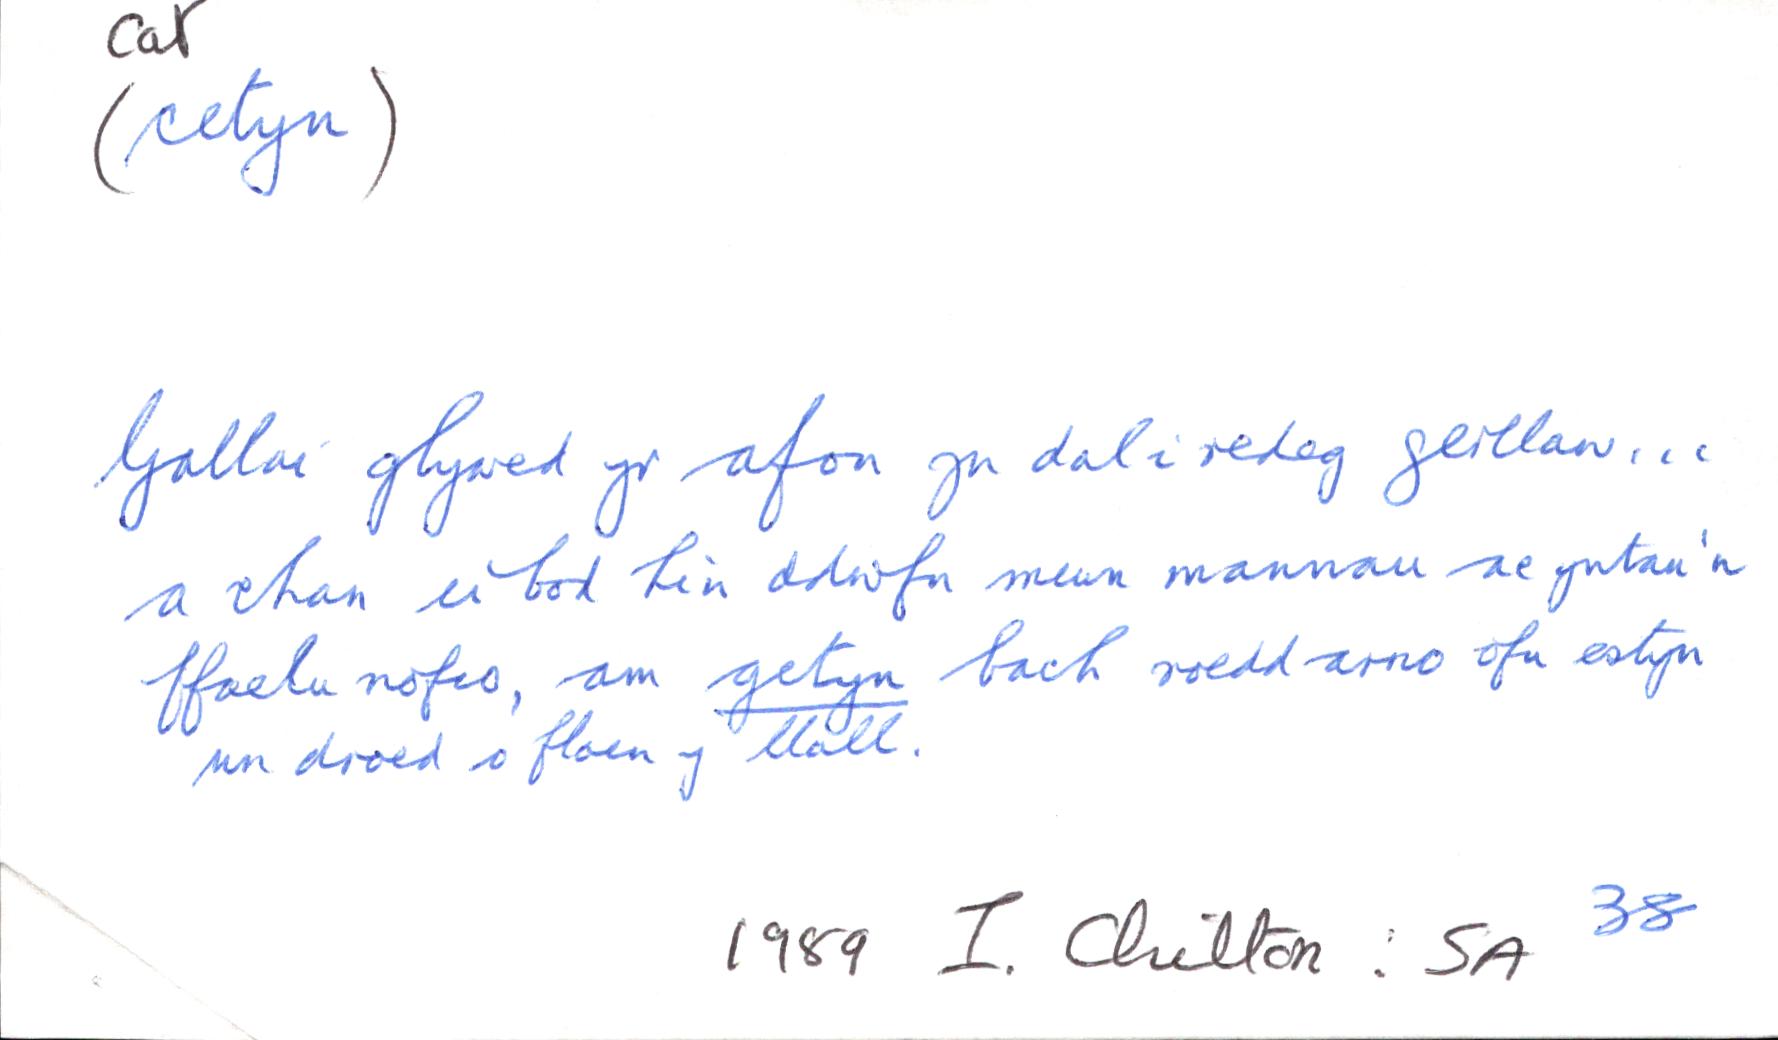 cat
(cetyn)
Gallai glywed yr afon yn dal i redeg gerllaw...
a chan ei bod hi'n ddwfn mewn mannau ac yntau'n
ffaelu nofio, am getyn bach roedd arno ofn estyn
un droed o flaen y llall.
1989 I. Chilton : SA 38